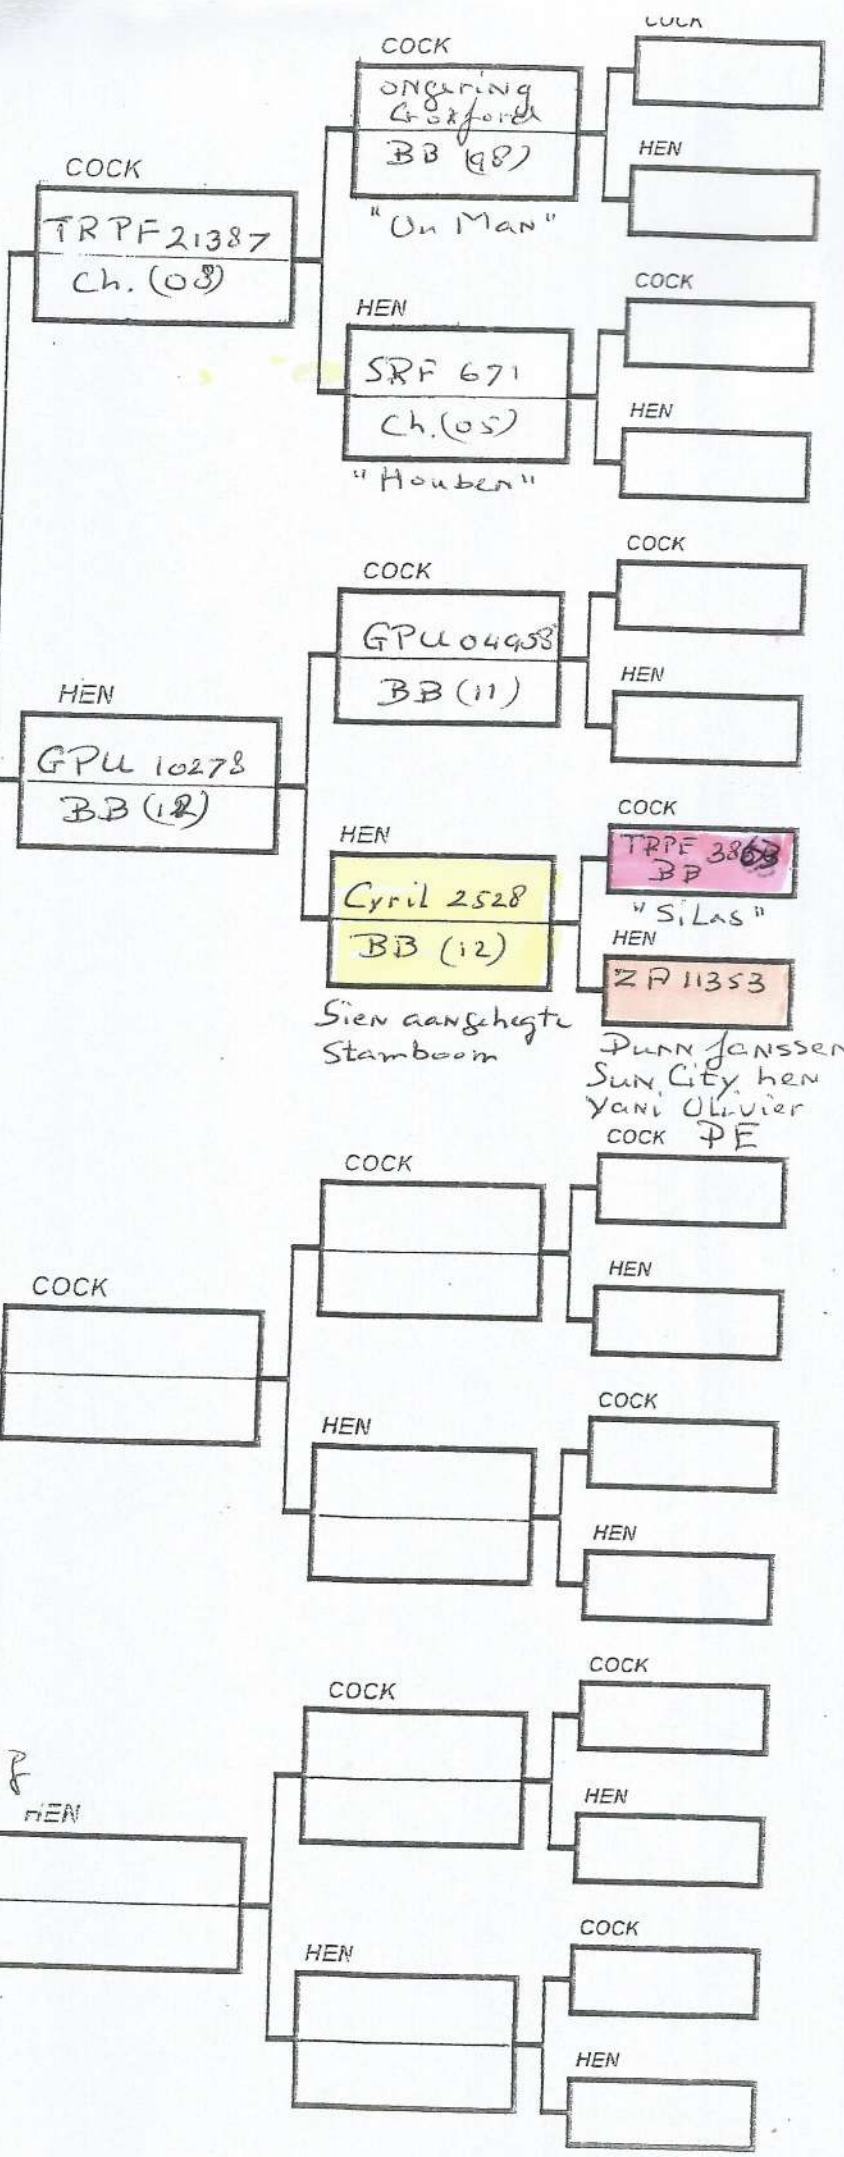 COCK
COCK
ongering
Croxford
BB (98)
"Un Man"
HEN
COCK
TRPF 21387
Ch. (08)
COCK
HEN
SRF 671
Ch. (05)
"Houben"
HEN
COCK
COCK
GPU 04953
BB (11)
HEN
HEN
GPU 10278
BB (12)
COCK
TRPF
BB
"Silas"
HEN
Cyril 2528
BB (12)
Sien aangehegte
Stamboom
HEN
ZA 11353
Dunn Janssen
Sun City hen
Yani Olivier
DE
COCK
COCK
HEN
COCK
HEN
COCK
HEN
COCK
COCK
HEN
HEN
HEN
COCK
HEN